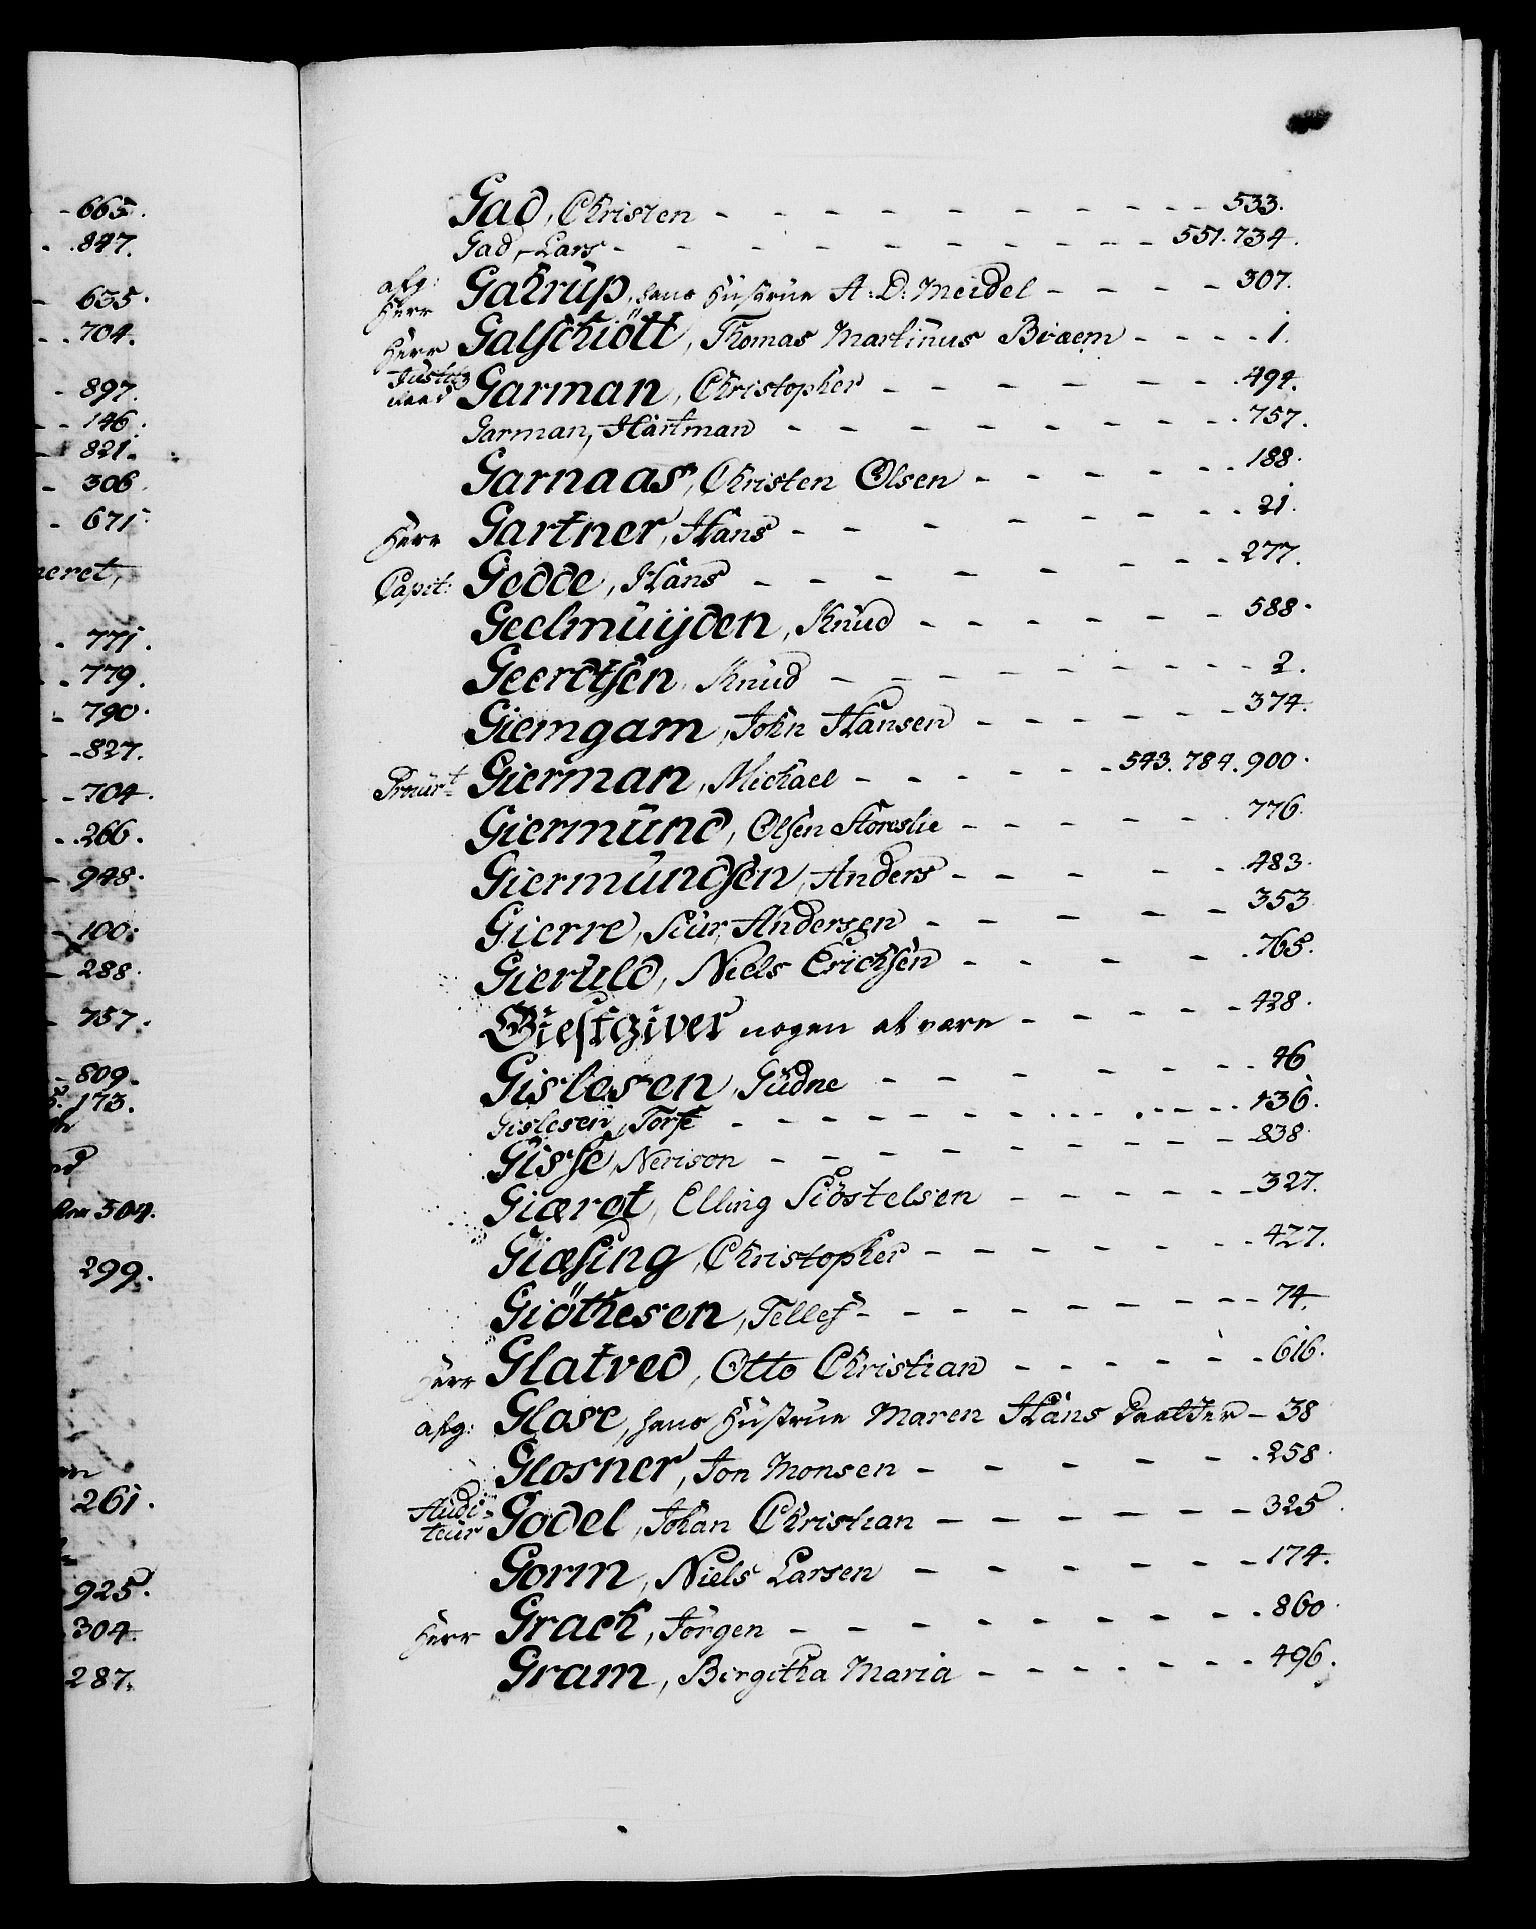 665.
847.
635.
704.
897.
146.
821.
306
671.
neret,
771.
779.
790.
827.
704.
266.
948.
100.
288.
757.
809.
173.
504.
299.
261.
925.
304.
287.
Gad, Christen - - - - - - - - - - 533.
Gad, Lars - - - - - - - - - 551. 734.
afg: Herr Gakrup, hans Hüstrüe A: D: Meidel - - - - 307.
Herr Galschiött, Thomas Martinus Braem - - - - 1.
Justitz Raad Garman, Christopher - - - - - - - 494.
Garman, Hartman - - - - - - - 757.
Garnaas, Christen Olsen - - - - - - 188.
Herr Gartner, Hans - - - - - - - 21.
Capit: Gedde, Hans - - - - - - - 277.
Geelmüÿden, Knud - - - - - - 588.
Geerdtsen, Knud - - - - - - - - 2.
Giemgam, John Hansen - - - - - - 374.
Prour.t Gierman, Michael - - - - - - 543. 784. 900.
Giermünd, Olsen Storeslie - - - - - 776.
Giermündsen, Anders - - - - - 483.
Gierre, Siur Andersen - - - - - 353
Gieruld, Niels Erichsen - - - - - 765.
Giestgiver nogen at være - - - - - 428.
Gislesen, Güdne - - - - - - 46.
Gislesen, Torse - - - - - - - - - 136.
Gisse, Nerison - - - - - - - - 838.
Giærdt, Elling Siöstelsen - - - - - - 327.
Giæsing, Christopher - - - - - - - 427.
Giöthesen, Tellef - - - - - - - - 74.
Herr Glatved, Otto Christian - - - - - 616.
afg: Glose, hans Hüstrüe Maren Hans Daatter - 38
Glosner, Jon Monsen - - - - - - 258.
Audi- teur Godel, Johan Christian - - - - - - 325.
Gorm, Niels Larsen - - - - - - 174.
Herr Grack, Jörgen - - - - - - - - 860.
Gram, Birgitha Maria - - - - - - - 496.